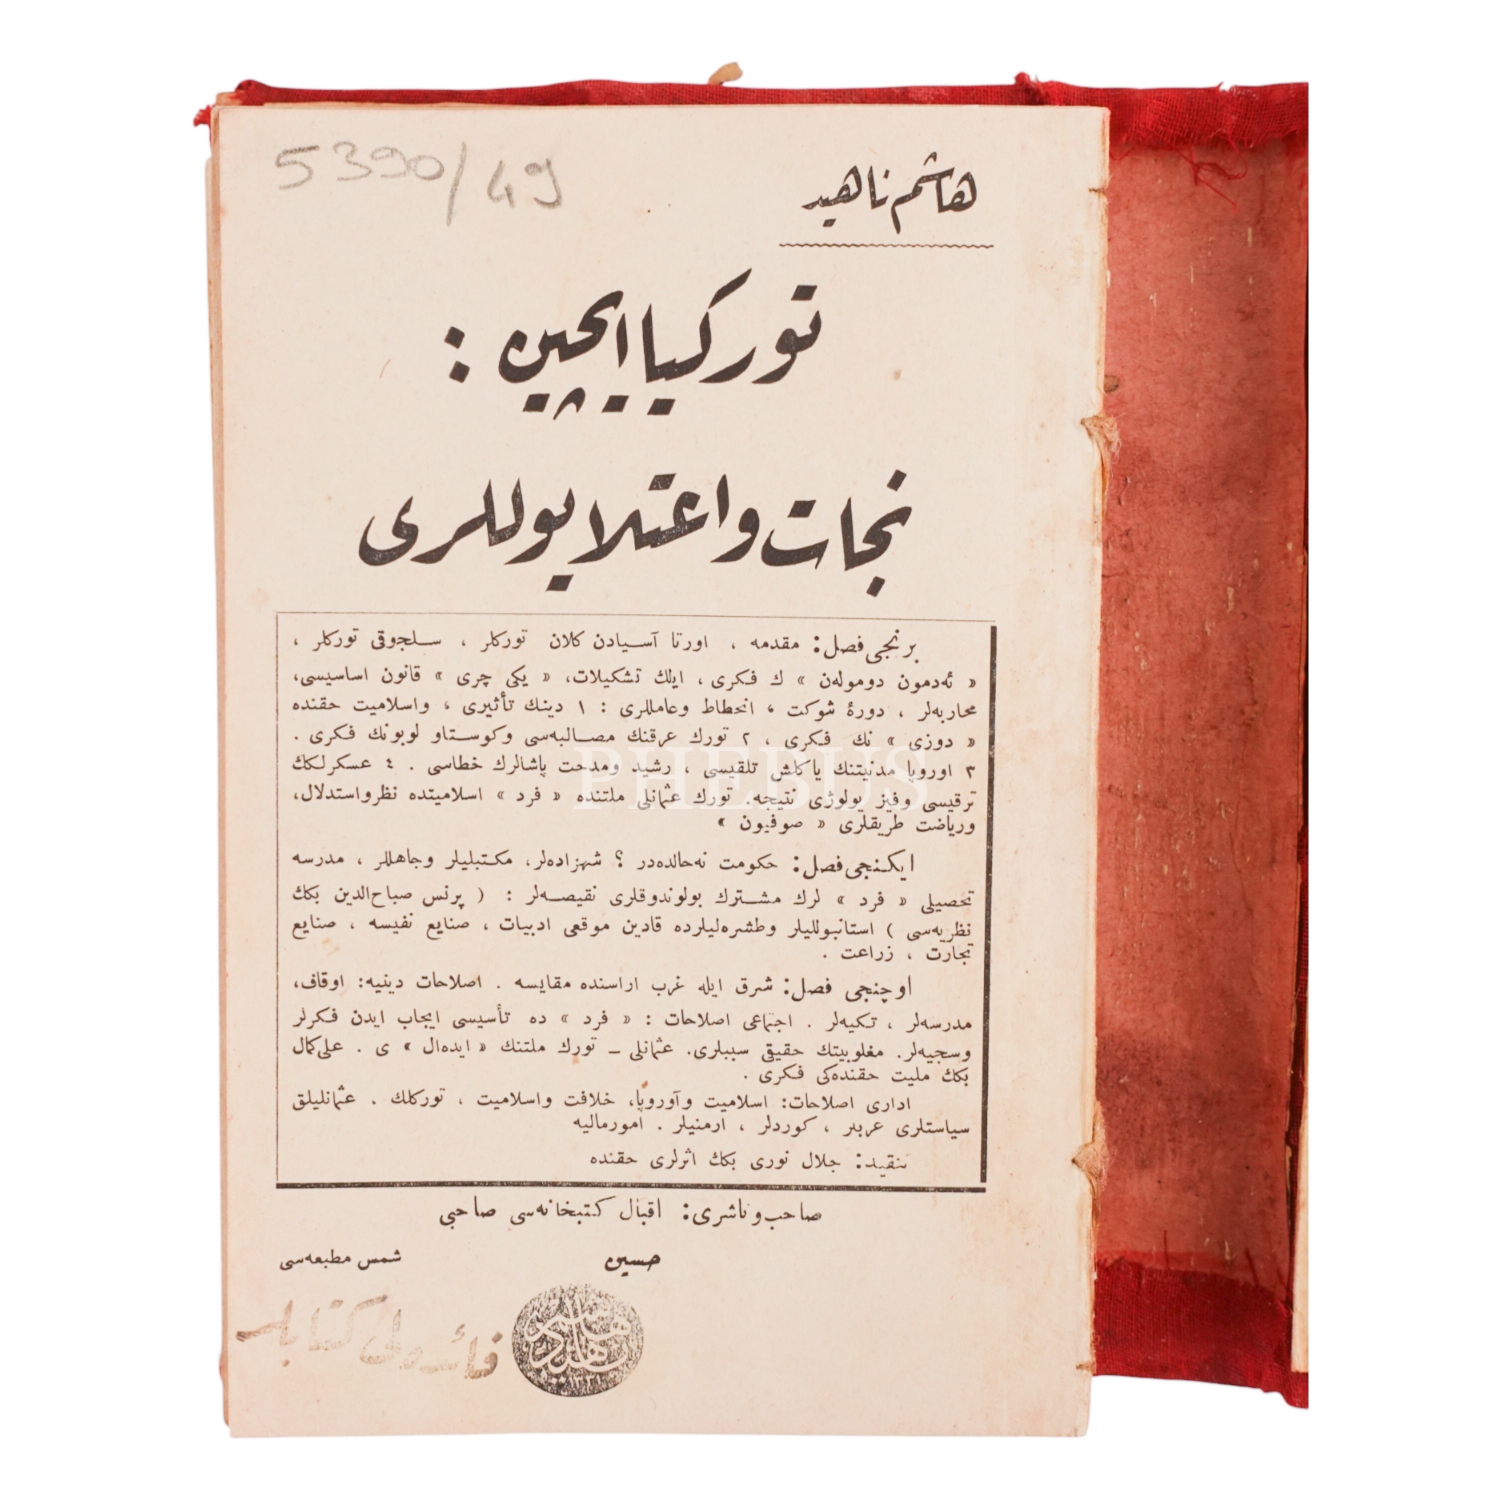 5390/49
هاشم ناهيد
توركيا ايچين :
نجات و اعتلا يوللرى
برنجى فصل: مقدمه ، اورتا آسيادن كلان توركلر ، سلجوقى توركلر ،
« ئه‌دمون دومولەن » ك فكرى ، ايلك تشكيلات، « يكى چرى » قانون اساسيسى،
محاربه‌لر ، دورۀ شوكت ، انحطاط وعامللرى : ١ دينك تأثيرى ، واسلاميت حقنده
« دوزى » نك فكرى ، ٢ تورك عرقنك مصالبه‌سى وكوستاو لوبونك فكرى .
٣ اوروپا مدنيتنك ياكلش تلقيسى ، رشيد ومدحت پاشالرك خطاسى . ٤ عسكرلكك
ترقيسى وفيزيولوژى نتيجه. تورك عثمانلى ملتنده « فرد » اسلاميتده نظر واستدلال،
ورياضت طريقلرى « صوفيون »
ايكنجى فصل: حكومت نه‌حالده‌در ؟ شهزاده‌لر، مكتبليلر وجاهللر ، مدرسه
تحصيلى « فرد » لرك مشترك بولوندوقلرى نقيصه‌لر : ( پرنس صباح‌الدين بكك
نظريه‌سى ) استانبولليلر وطشره‌ليلرده قادين موقعى ادبيات ، صنايع نفيسه ، صنايع
تجارت ، زراعت .
اوچنجى فصل: شرق ايله غرب اراسنده مقايسه . اصلاحات دينيه: اوقاف،
مدرسه‌لر ، تكيه‌لر . اجتماعى اصلاحات : « فرد » ده تأسيسى ايجاب ايدن فكرلر
وسجيه‌لر. مغلوبيتك حقيقى سببلرى. عثمانلى ــ تورك ملتنك « ايده‌ال » ى . على كمال
بكك مليت حقنده‌كى فكرى .
ادارى اصلاحات: اسلاميت وآوروپا، خلافت واسلاميت ، توركلك . عثمانليلق
سياستلرى عربلر ، كوردلر ، ارمنيلر . امورماليه
تنقيد: جلال نورى بكك اثرلرى حقنده
صاحب و ناشرى: اقبال كتبخانه‌سى صاحبى
حسين
شمس مطبعه‌سى
فائده‌لى كتابلر
هاشم ناهيد
١٣٣١
PHEBUS